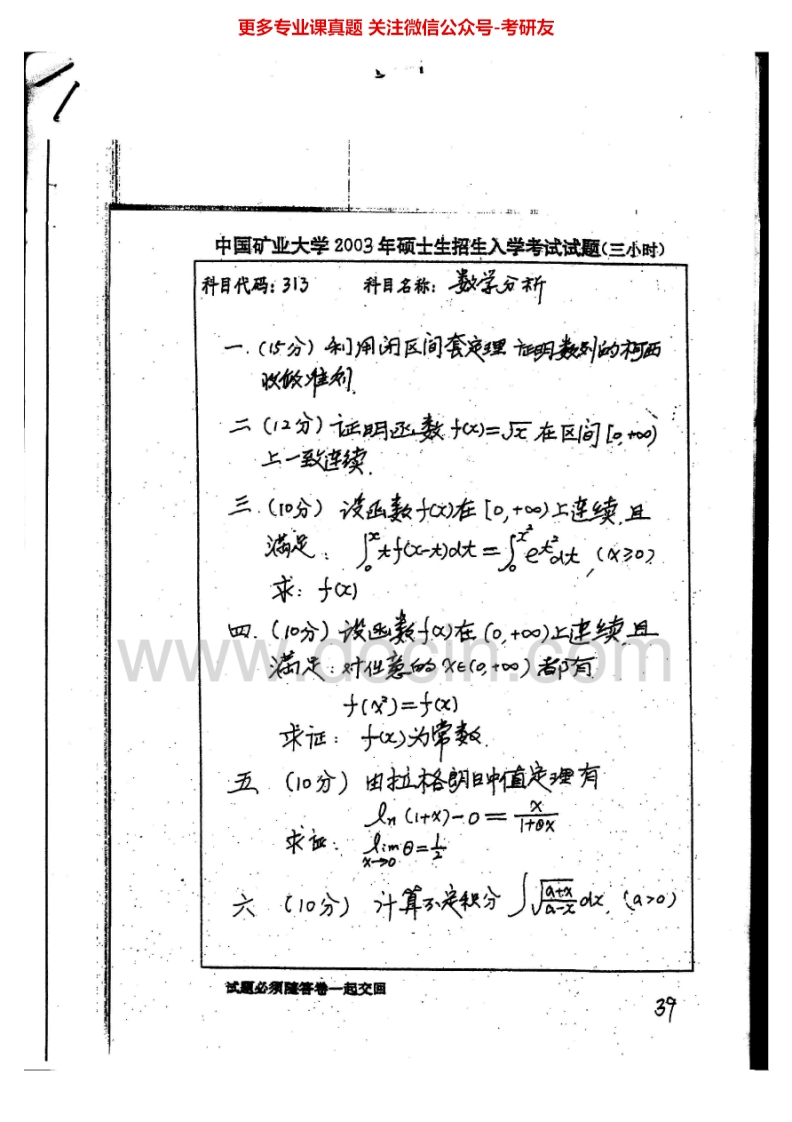 更多专业课真题 关注微信公众号-考研友
中国矿业大学2003年硕士生招生入学考试试题(三小时)
科目代码:313 科目名称:数学分析
一.(15分)利用闭区间套定理 证明数列的柯西
收敛准则.
二(12分)证明函数f(x)=√x 在区间[0,+∞)
上一致连续.
三.(10分) 设函数f(x)在[0,+∞)上连续,且
满足: ∫₀ˣ t f(x-t)dt = ∫₀^{x²} e^{t²}dt, (x≥0)
求: f(x)
四.(10分)设函数f(x)在(0,+∞)上连续,且
满足:对任意的x∈(0,+∞)都有
f(x²)=f(x)
求证: f(x)为常数.
五 (10分) 由拉格朗日中值定理有
ln(1+x)-0 = x/(1+θx)
求证: lim_{x→0} θ = 1/2
六 (10分) 计算不定积分 ∫√((a+x)/(a-x)) dx, (a>0)
试题必须随答卷一起交回
39
www.docin.com